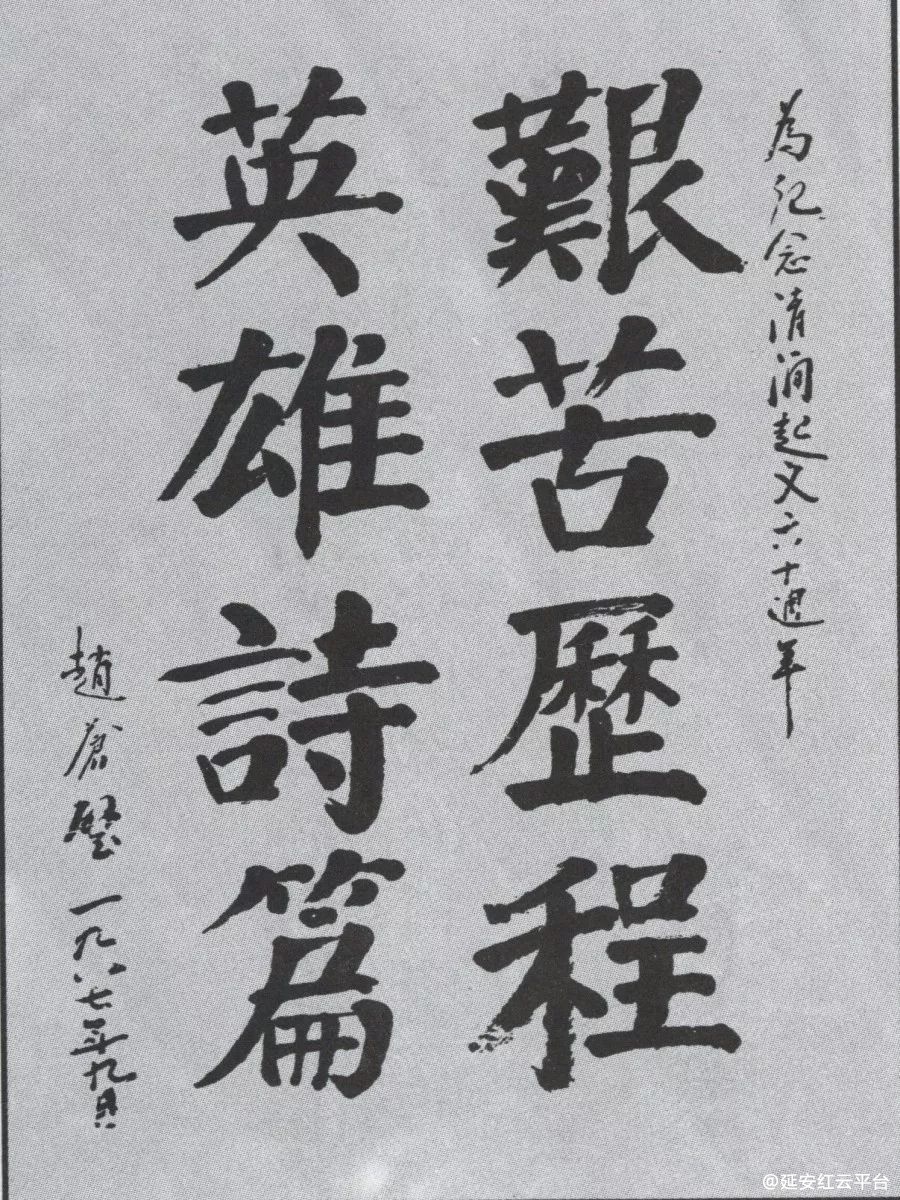 為记念清涧起义六十週年
艱苦歷程
英雄詩篇
趙蒼璧 一九八七年九月
@延安红云平台